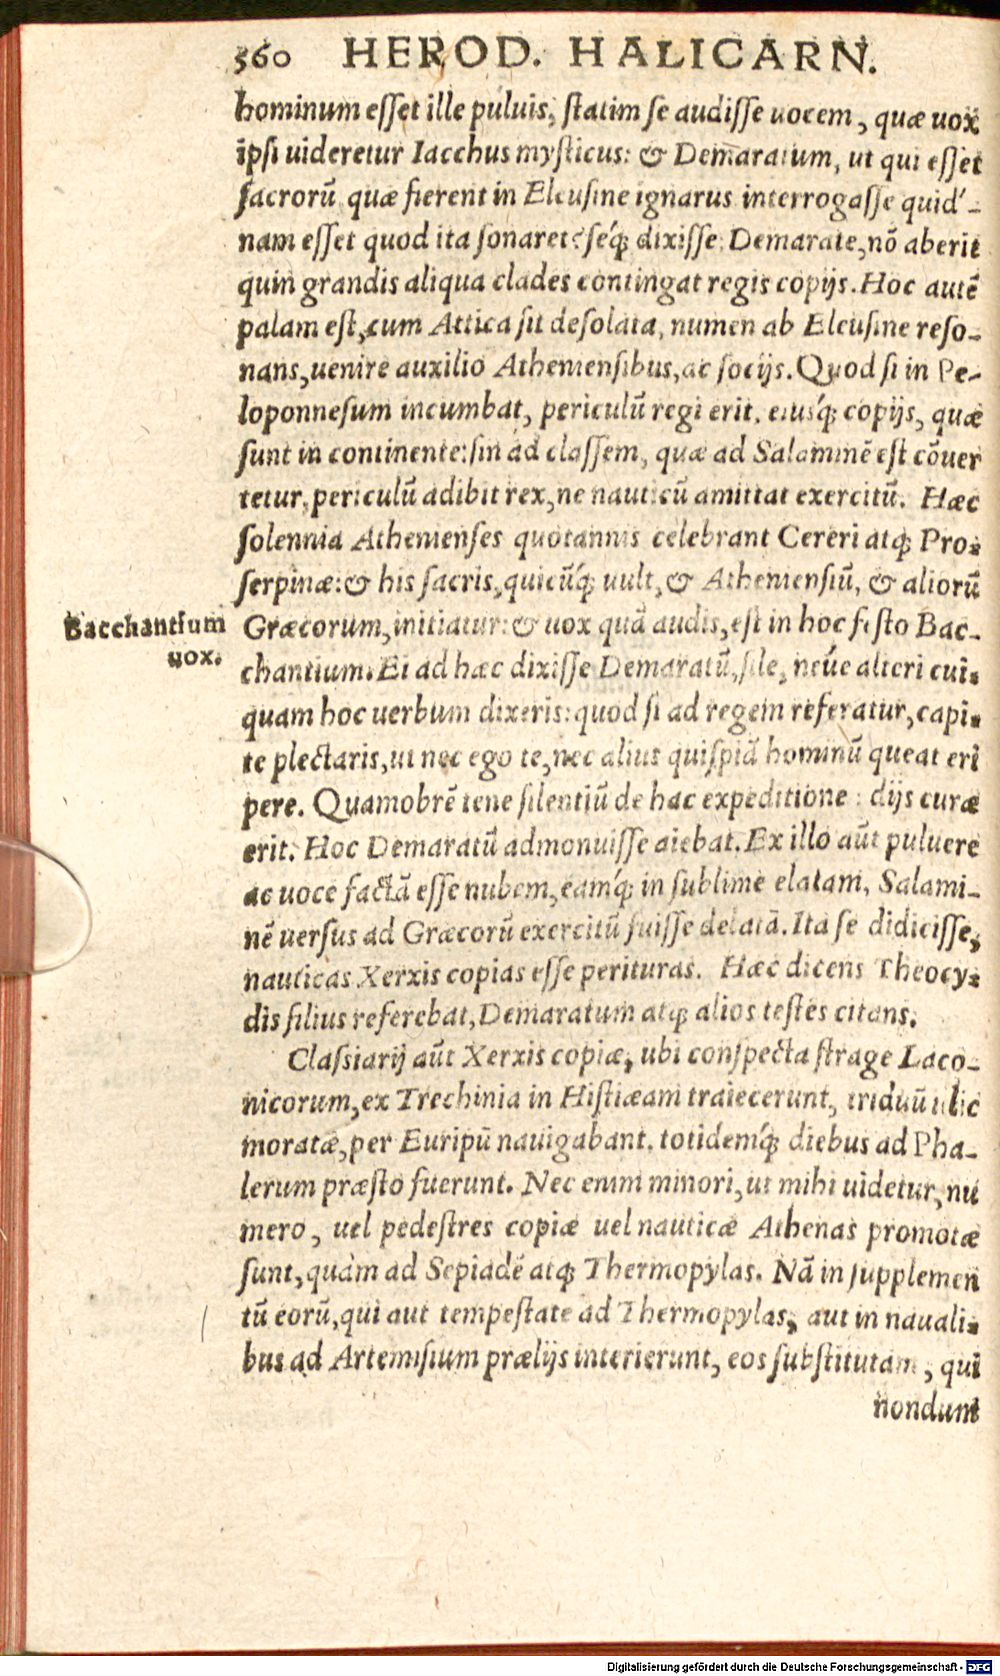 560 HEROD. HALICARN.
hominum eſſet ille puluis, ſtatim ſe audiſſe uocem, quæ uox
ipſi uideretur Iacchus myſticus: & Demaratum, ut qui eſſet
ſacrorũ quæ fierent in Eleuſine ignarus interrogaſſe quid-
nam eſſet quod ita ſonaret: ſeq́; dixiſſe, Demarate, nõ aberit
quin grandis aliqua clades contingat regis copijs. Hoc autẽ
palam eſt, cum Attica ſit deſolata, numen ab Eleuſine reſo-
nans, uenire auxilio Athenienſibus, ac ſocijs. Quod ſi in Pe-
loponneſum incumbat, periculũ regi erit, eiusq́; copijs, quæ
ſunt in continente: ſin ad claſſem, quæ ad Salaminẽ eſt cõuer
tetur, periculũ adibit rex, ne nauticũ amittat exercitũ. Hæc
ſolennia Athenienſes quotannis celebrant Cereri atq; Pro-
ſerpinæ: & his ſacris, quicũq́; uult, & Athenienſiũ, & aliorũ
Bacchantium
uox.
Græcorum, initiatur: & uox quã audis, eſt in hoc feſto Bac-
chantium. Ei ad hæc dixiſſe Demaratũ, ſile, néue alteri cui-
quam hoc uerbum dixeris: quod ſi ad regem referatur, capi-
te plectaris, ut nec ego te, nec alius quiſpiã hominũ queat eri
pere. Quamobrẽ tene ſilentiũ de hac expeditione: dijs curæ
erit. Hoc Demaratũ admonuiſſe aiebat. Ex illo aũt puluere
ac uoce factã eſſe nubem, eamq́; in ſublime elatam, Salami-
nẽ uerſus ad Græcorũ exercitũ fuiſſe delatã. Ita ſe didiciſſe,
nauticas Xerxis copias eſſe perituras. Hæc dicens Theocy-
dis filius referebat, Demaratum atq; alios teſtes citans.
Claſsiarij aũt Xerxis copiæ, ubi conſpecta ſtrage Laco-
nicorum, ex Trechinia in Hiſtiæam traiecerunt, triduũ illic
moratæ, per Euripũ nauigabant, totidemq́; diebus ad Pha-
lerum præſto fuerunt. Nec enim minori, ut mihi uidetur, nu
mero, uel pedeſtres copiæ uel nauticæ Athenas promotæ
ſunt, quàm ad Sepiadẽ atq; Thermopylas. Nã in ſupplemen
tũ eorũ, qui aut tempeſtate ad Thermopylas, aut in nauali-
bus ad Artemiſium prælijs interierunt, eos ſubſtitutam, qui
nondum
Digitalisierung gefördert durch die Deutsche Forschungsgemeinschaft - DFG